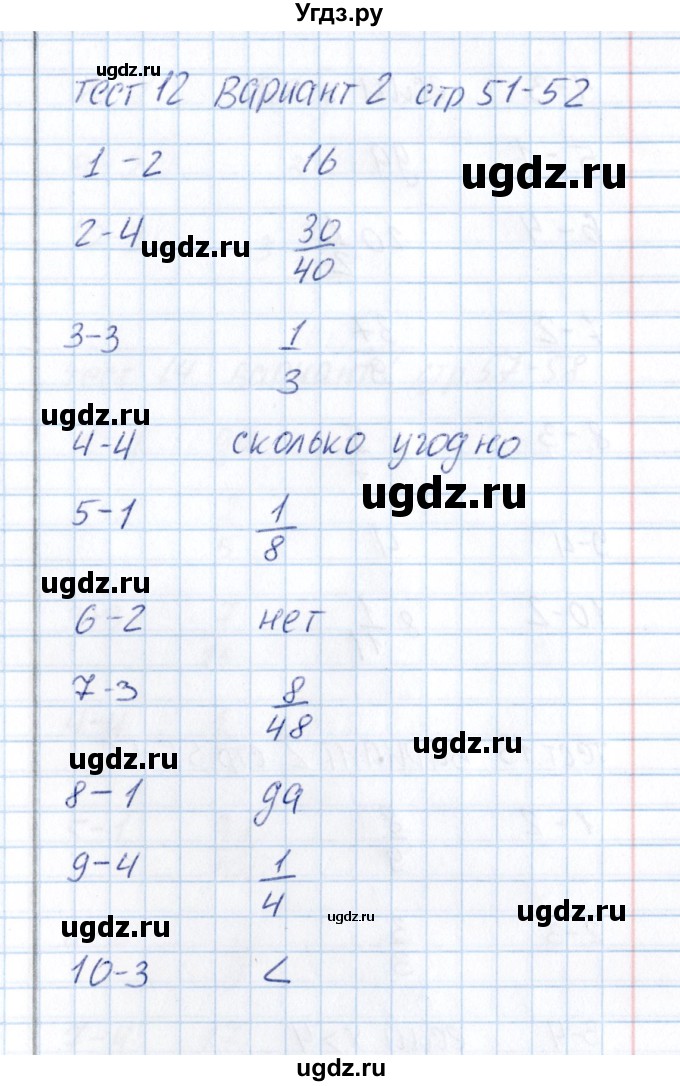 Угдз.ру
ugdz.ru
Тест 12 Вариант 2 стр 51-52
1-2 16
ugdz.ru
2-4 30/40
ugdz.ru
3-3 1/3
ugdz.ru
4-4 сколько угодно
ugdz.ru
5-1 1/8
ugdz.ru
6-2 нет
7-3 8/48
ugdz.ru
ugdz.ru
8-1 да
9-4 1/4
ugdz.ru
ugdz.ru
ugdz.ru
10-3 <
ugdz.ru